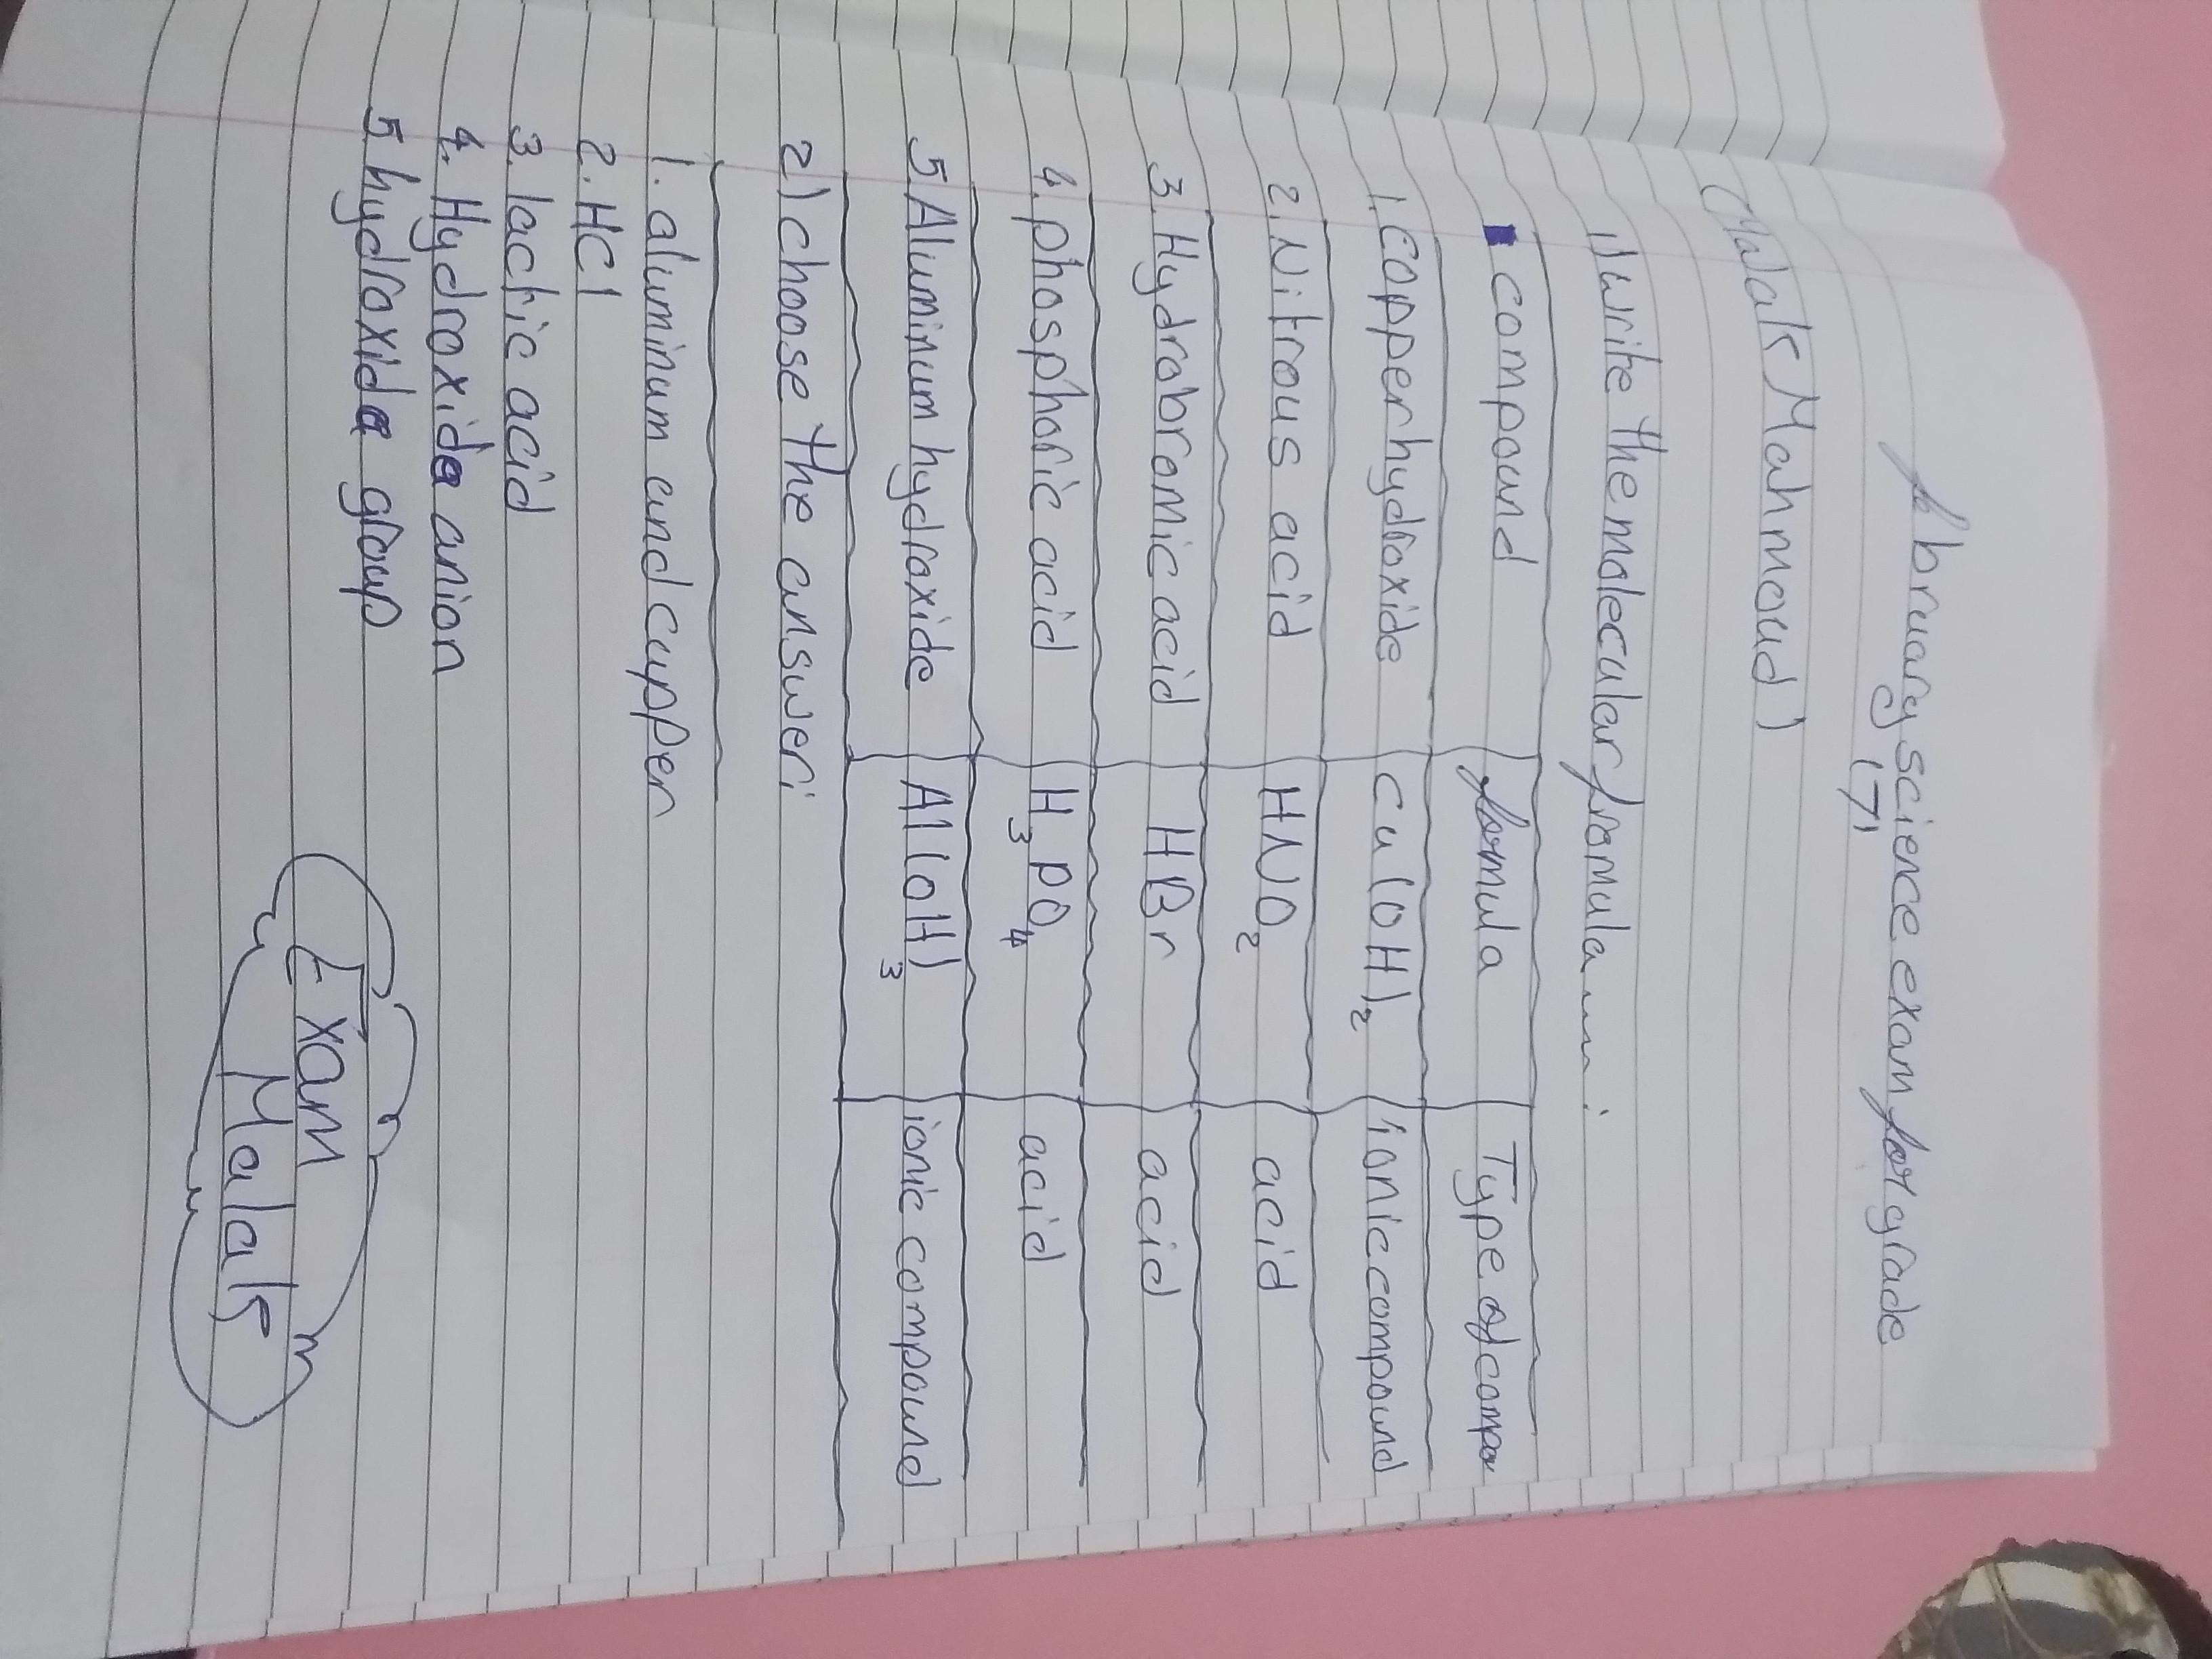 fbruary science exam for grade
(7)
(Malak Mahmoud)
1) write the molecular formula :
compound formula Type of compou
1. Copper hydroxide Cu(OH)₂ ionic compound
2. Nitrous acid HNO₂ acid
3. Hydrobromic acid HBr acid
4. phosphoric acid H₃PO₄ acid
5. Aluminum hydroxide Al(OH)₃ ionic compound
2) choose the answer:
1. aluminum and cupper
2. HCl
3. lactic acid
4. Hydroxide anion
5. hydroxide group
Exam
Malak